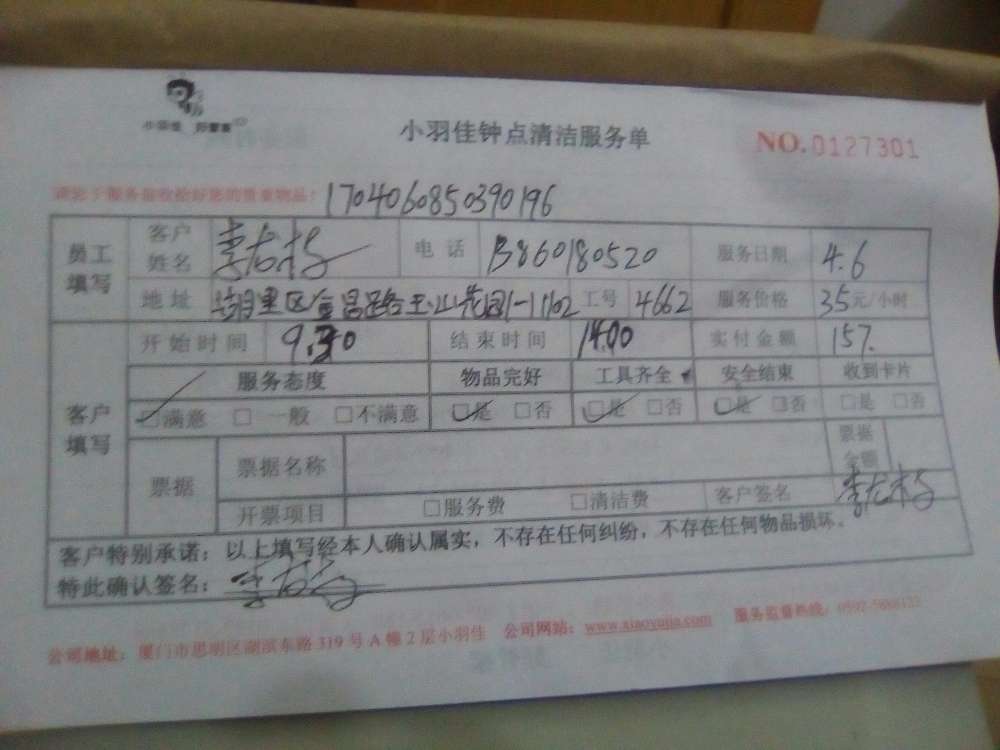 小羽佳 好管家
小羽佳钟点清洁服务单
NO.0127301
170406085039 0196
员工填写 客户姓名 电话 13860180520 服务日期 4.6
地址 湖里区 工号 4662 服务价格 35元/小时
开始时间 9.30 结束时间 14.00 实付金额 157.
客户填写 服务态度 物品完好 工具齐全 安全结束 收到卡片
□满意 □一般 □不满意 □是 □否 □是 □否 □是 □否 □是 □否
票据 票据名称 票据金额
开票项目 □服务费 □清洁费 客户签名
客户特别承诺：以上填写经本人确认属实，不存在任何纠纷，不存在任何物品损坏。
特此确认签名：
公司地址：厦门市思明区湖滨东路319号A幢2层小羽佳 公司网站：www.xiaoyujia.com 服务监督热线：